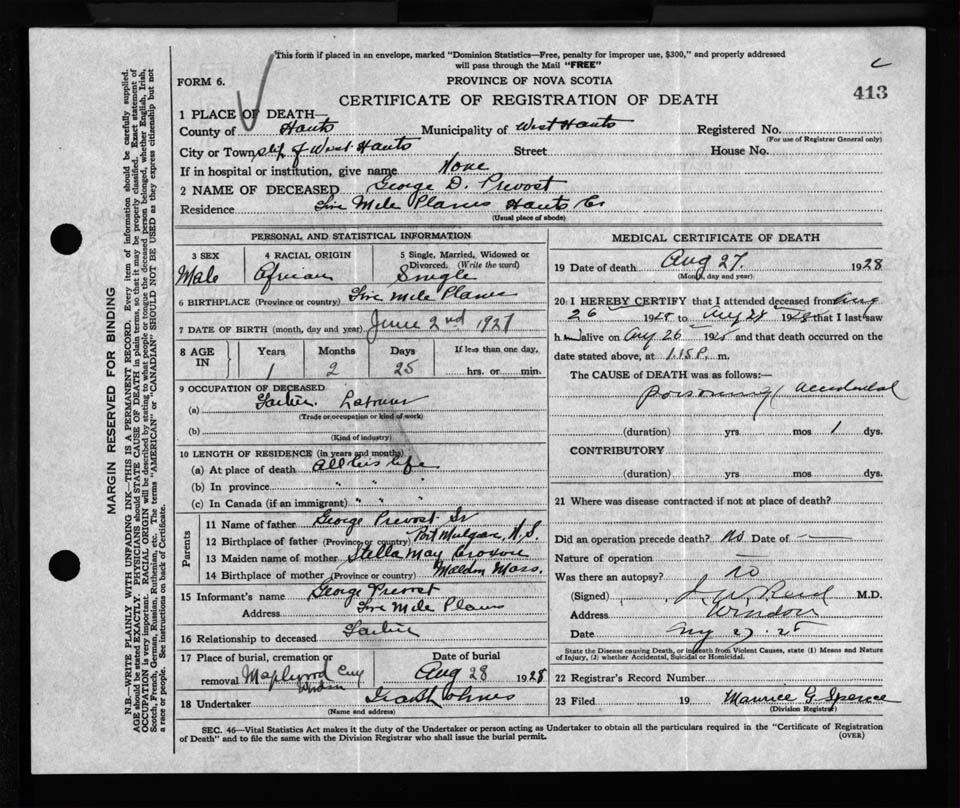 This form if placed in an envelope, marked "Dominion Statistics—Free, penalty for improper use, $300," and properly addressed
will pass through the Mail "FREE"
FORM 6.
PROVINCE OF NOVA SCOTIA
CERTIFICATE OF REGISTRATION OF DEATH
413
1 PLACE OF DEATH—
County of Hants Municipality of West Hants Registered No.
(For use of Registrar General only)
City or Town of West Hants Street House No.
If in hospital or institution, give name None
2 NAME OF DECEASED George D. Prevost
Residence Five Mile Plains Hants Co
(Usual place of abode)
PERSONAL AND STATISTICAL INFORMATION
3 SEX 4 RACIAL ORIGIN 5 Single, Married, Widowed or
Divorced. (Write the word)
Male African Single
6 BIRTHPLACE (Province or country) Five Mile Plains
7 DATE OF BIRTH (month, day and year) June 2nd 1927
8 AGE IN Years Months Days If less than one day,
1 2 25 hrs. or min.
9 OCCUPATION OF DECEASED
(a) Father Labourer
(Trade or occupation or kind of work)
(b)
(Kind of industry)
10 LENGTH OF RESIDENCE (in years and months)
(a) At place of death All his life
(b) In province " " "
(c) In Canada (if an immigrant) " " "
Parents
11 Name of father George Prevost Sr
12 Birthplace of father (Province or country) Port Mulgar, N.S.
13 Maiden name of mother Stella May
14 Birthplace of mother (Province or country) Maldon Mass.
15 Informant's name George Prevost
Address Five Mile Plains
16 Relationship to deceased Father
17 Place of burial, cremation or
removal Maplewood Cmy
Windsor
Date of burial
Aug 28 1928
18 Undertaker
(Name and address)
MEDICAL CERTIFICATE OF DEATH
19 Date of death Aug 27 1928
(Month, day and year)
20 I HEREBY CERTIFY that I attended deceased from Aug
26 1928 to Aug 28 1928 that I last saw
him alive on Aug 26 1928 and that death occurred on the
date stated above, at 1.15 P. m.
The CAUSE of DEATH was as follows:—
poisoning (accidental
(duration) yrs mos 1 dys.
CONTRIBUTORY
(duration) yrs mos dys.
21 Where was disease contracted if not at place of death?
Did an operation precede death? No. Date of —
Nature of operation —
Was there an autopsy? no
(Signed) J W Reid M.D.
Address Windsor
Date Aug 27. 28
State the Disease causing Death, or in death from Violent Causes, state (1) Means and Nature
of Injury, (2) whether Accidental, Suicidal or Homicidal.
22 Registrar's Record Number
23 Filed 19 Maurice G. Spence
(Division Registrar)
SEC. 46—Vital Statistics Act makes it the duty of the Undertaker or person acting as Undertaker to obtain all the particulars required in the "Certificate of Registration
of Death" and to file the same with the Division Registrar who shall issue the burial permit.
(OVER)
MARGIN RESERVED FOR BINDING
N.B.—WRITE PLAINLY WITH UNFADING INK—THIS IS A PERMANENT RECORD. Every item of information should be carefully supplied.
AGE should be stated EXACTLY. PHYSICIANS should STATE CAUSE OF DEATH in plain terms, so that it may be properly classified. Exact statement of
OCCUPATION is very important. RACIAL ORIGIN will be described by stating to what people or tongue the deceased person belonged, whether English, Irish,
Scotch, French, German, Russian, Ruthenian, etc. The terms "AMERICAN" or "CANADIAN" SHOULD NOT BE USED as they express citizenship but not
a race or people. See instructions on back of Certificate.